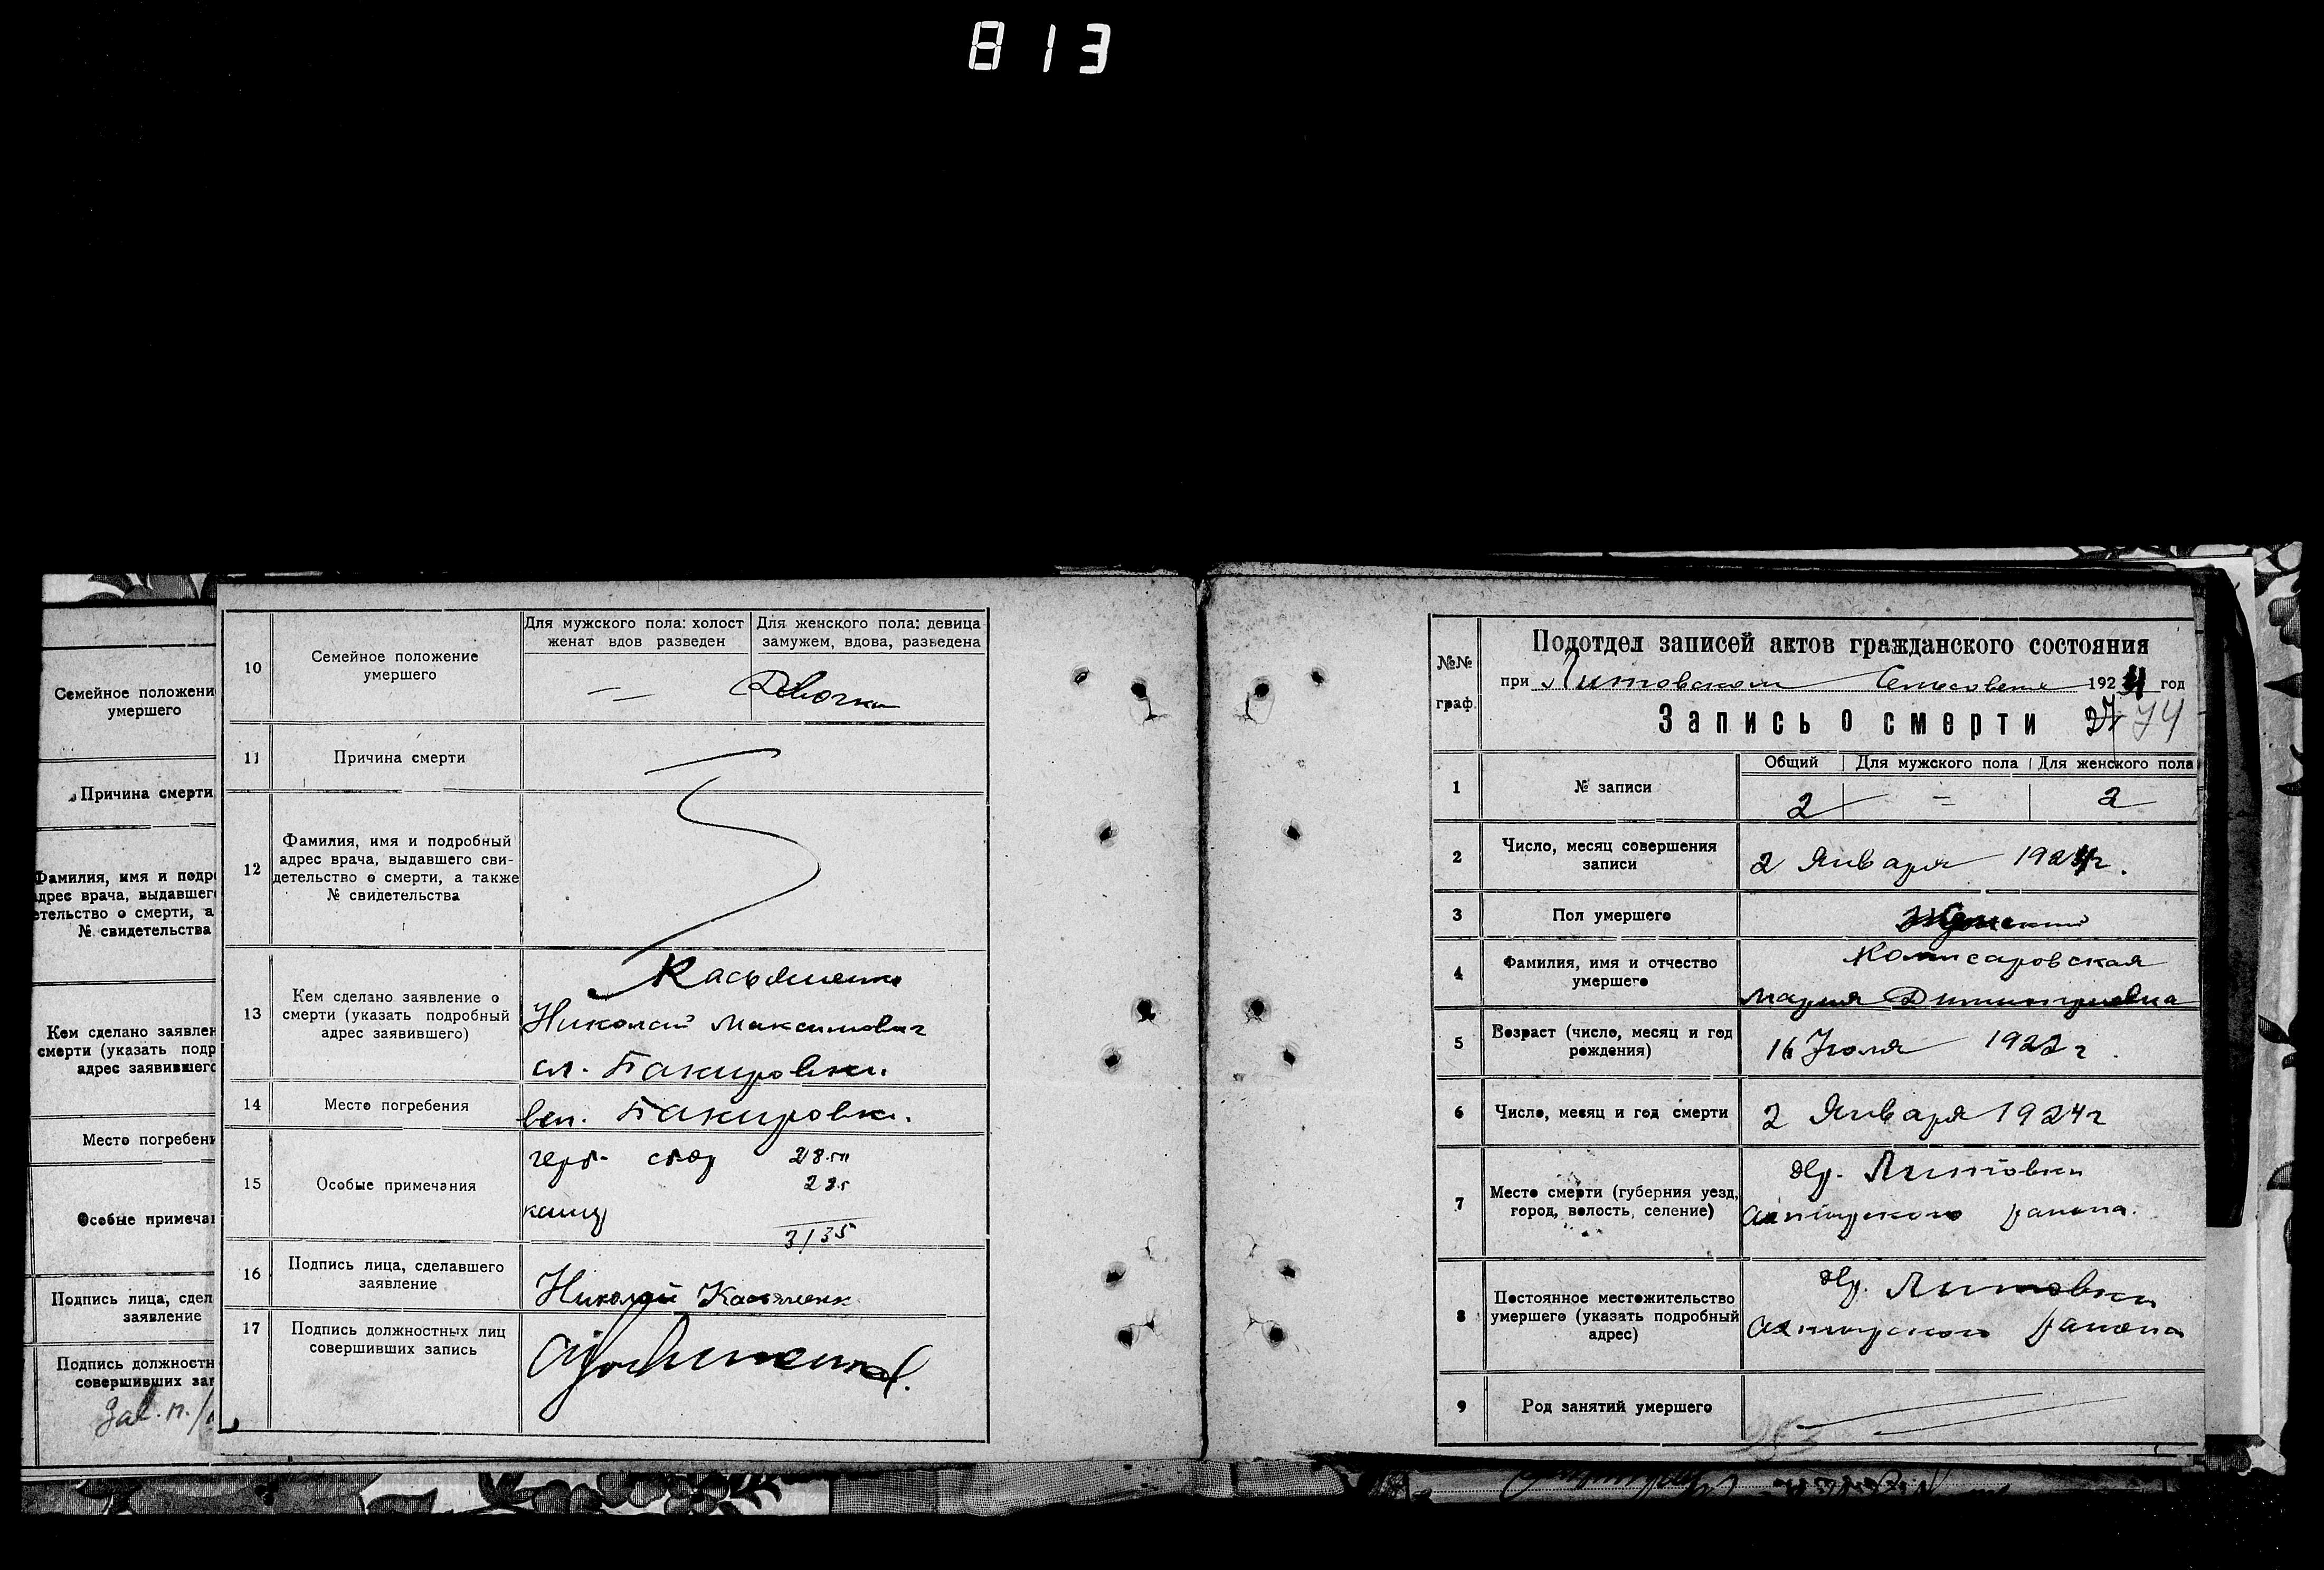 813
Семейное положени
умершего
Причина смерти
Фамилия, имя и подр
дрес врача, выдавшег
етельство о смерти, а
№ свидетельства
Кем сделано заявлен
смерти (указать подр
адрес заявившего
Место погребени
Особые примеча
Подпись лица, сдел
заявление
Подпись должностн
совершивших зап
10 Семейное положение
умершего
Для мужского пола: холост
женат вдов разведен
Для женского пола: девица
замужем, вдова, разведена
— Девочка
11 Причина смерти
12 Фамилия, имя и подробный
адрес врача, выдавшего сви-
детельство о смерти, а также
№ свидетельства
13 Кем сделано заявление о
смерти (указать подробный
адрес заявившего)
Касьяненко
Николай Максимович
сл. Бакировки.
14 Место погребения
всл. Бакировки.
15 Особые примечания
герб. сбор 28
канц
3/35
16 Подпись лица, сделавшего
заявление
Николай Касяненк
17 Подпись должностных лиц
совершивших запись
№№
граф.
Подотдел записей актов гражданского состояния
при Литовском Сельсовете 1924 год
Запись о смерти 27 74
1 № записи
Общий Для мужского пола Для женского пола
2 = 2
2 Число, месяц совершения
записи
2 Января 1924г.
3 Пол умершего
Женский
4 Фамилия, имя и отчество
умершего
Комисаровская
Мария Димитриевна
5 Возраст (число, месяц и год
рождения)
16 Июля 1922 г.
6 Число, месяц и год смерти
2 Января 1924г
7 Место смерти (губерния уезд,
город, волость, селение)
дер. Литовки
Ахтырского района.
8 Постоянное местожительство
умершего (указать подробный
адрес)
дер. Литовки
Ахтырского района
9 Род занятий умершего